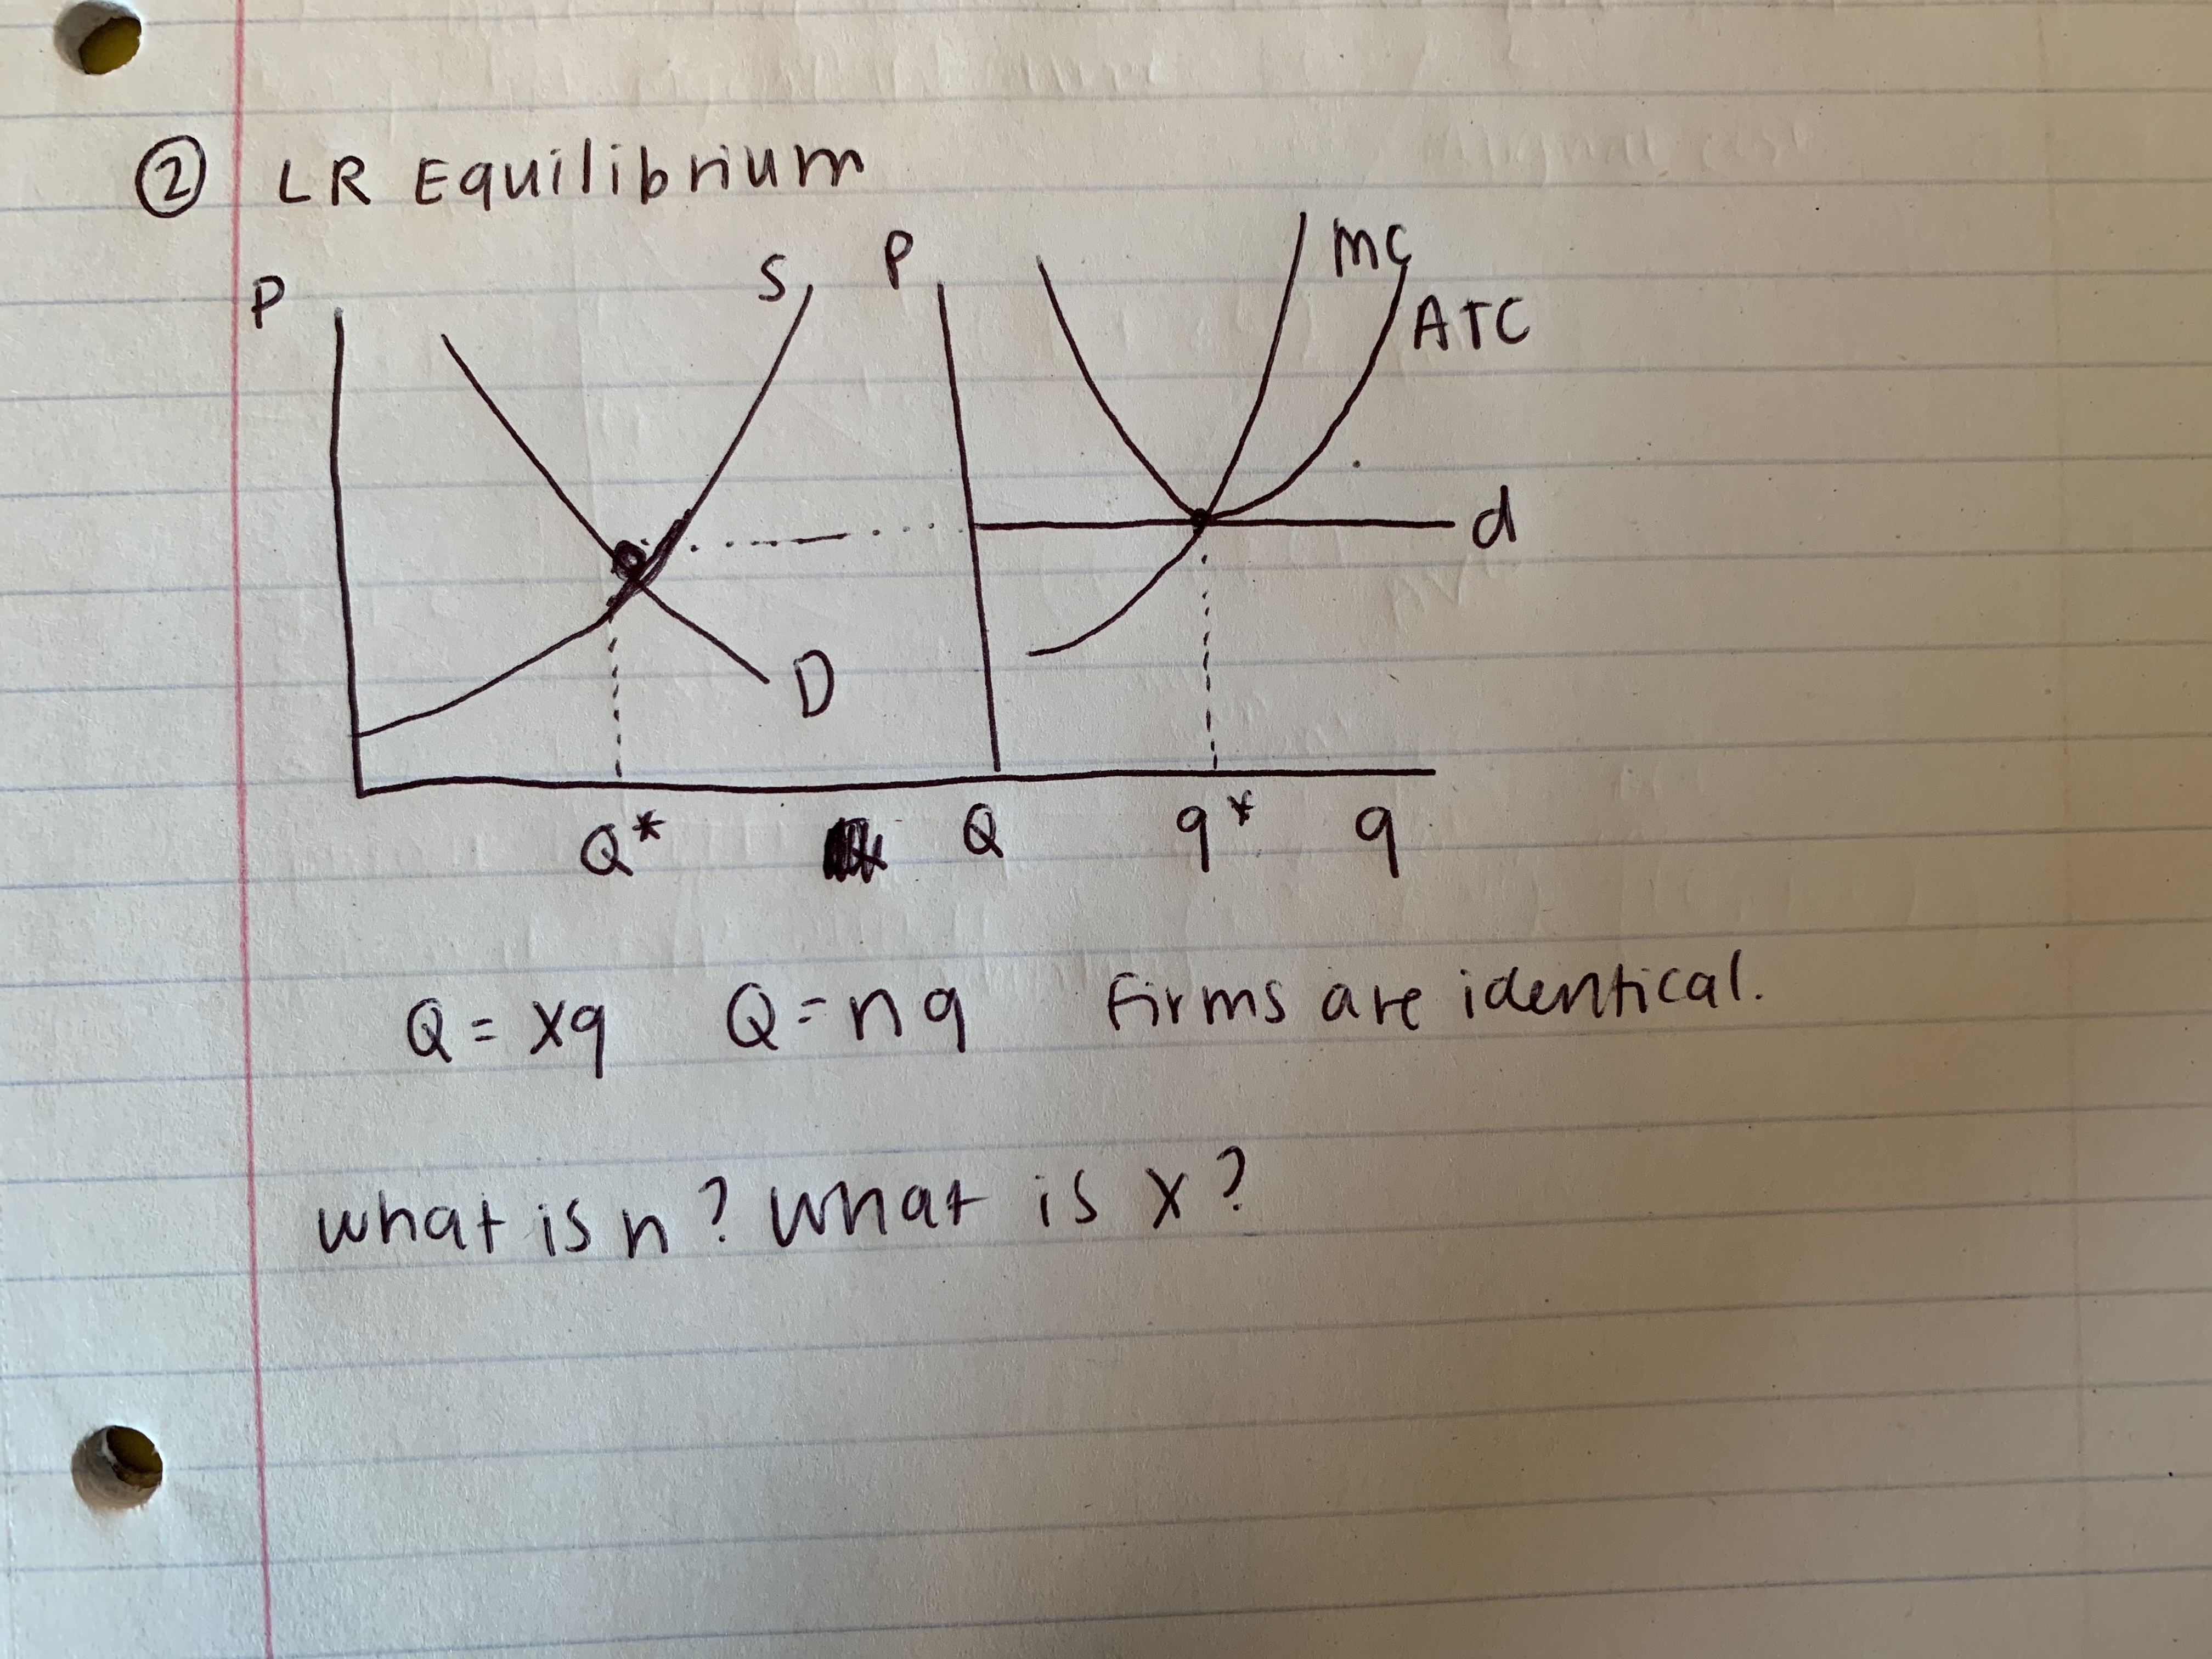 ② LR Equilibrium
P S P MC
ATC
d
D
Q* Q q* q
Q = xq Q = nq Firms are identical.
What is n? What is x?